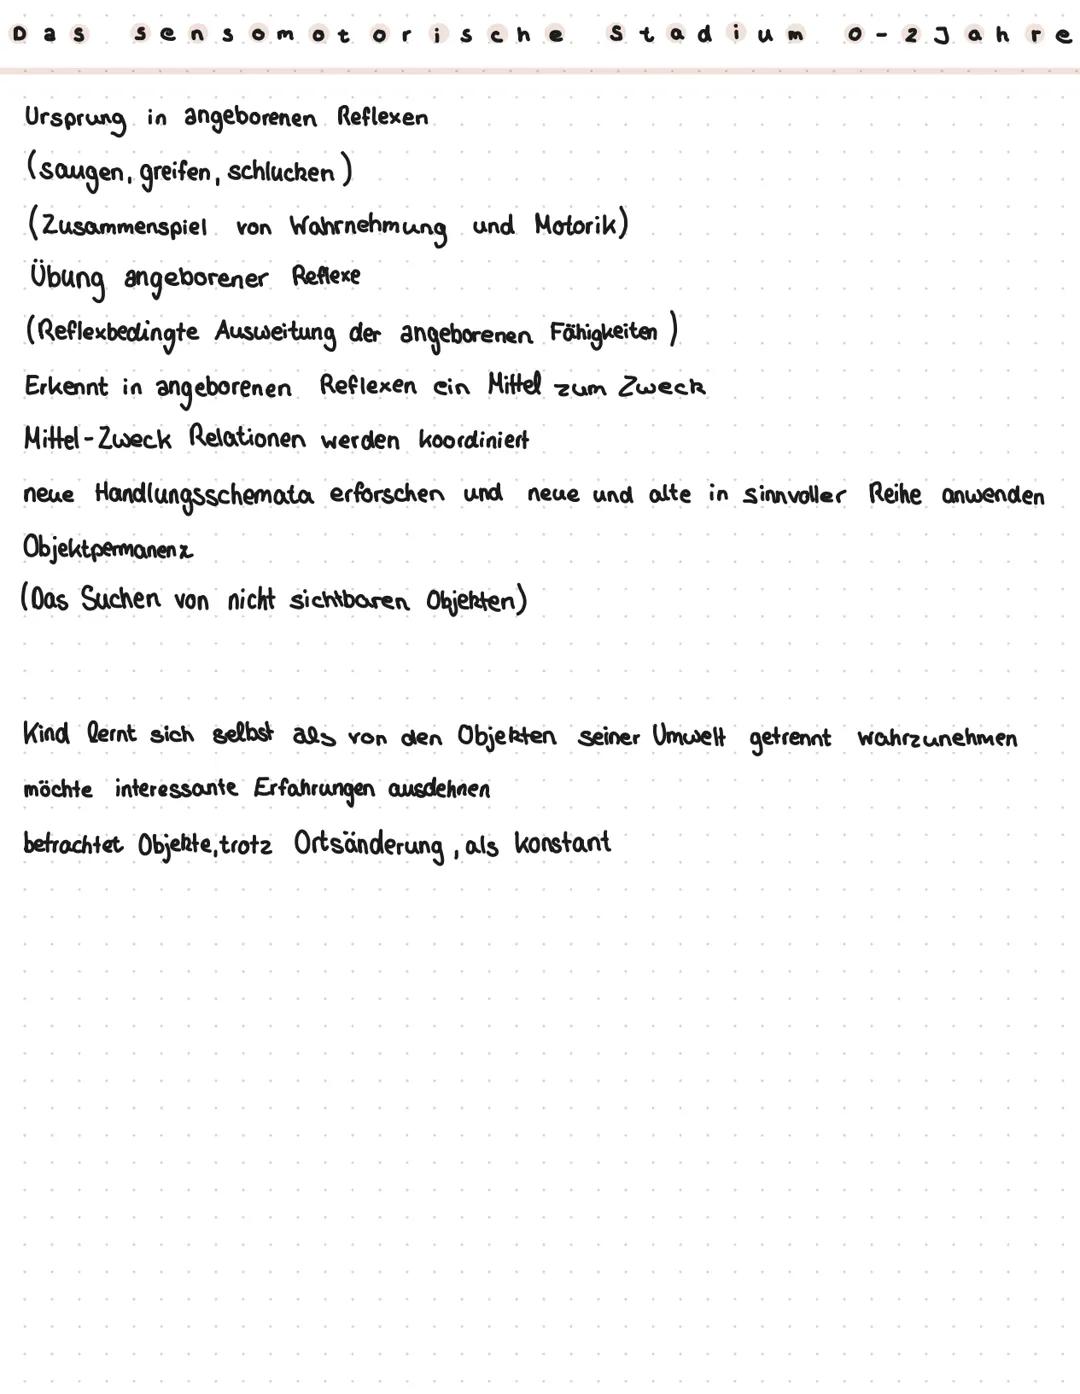 Das sensomotorische Stadium 0-2 Jahre
Ursprung in angeborenen Reflexen
(saugen, greifen, schlucken)
(Zusammenspiel von Wahrnehmung und Motorik)
Übung angeborener Reflexe
(Reflexbedingte Ausweitung der angeborenen Fähigkeiten)
Erkennt in angeborenen Reflexen ein Mittel zum Zweck
Mittel-Zweck Relationen werden koordiniert
neue Handlungsschemata erforschen und neue und alte in sinnvoller Reihe anwenden
Objektpermanenz
(Das Suchen von nicht sichtbaren Objekten)
Kind lernt sich selbst als von den Objekten seiner Umwelt getrennt wahrzunehmen
möchte interessante Erfahrungen ausdehnen
betrachtet Objekte, trotz Ortsänderung, als konstant